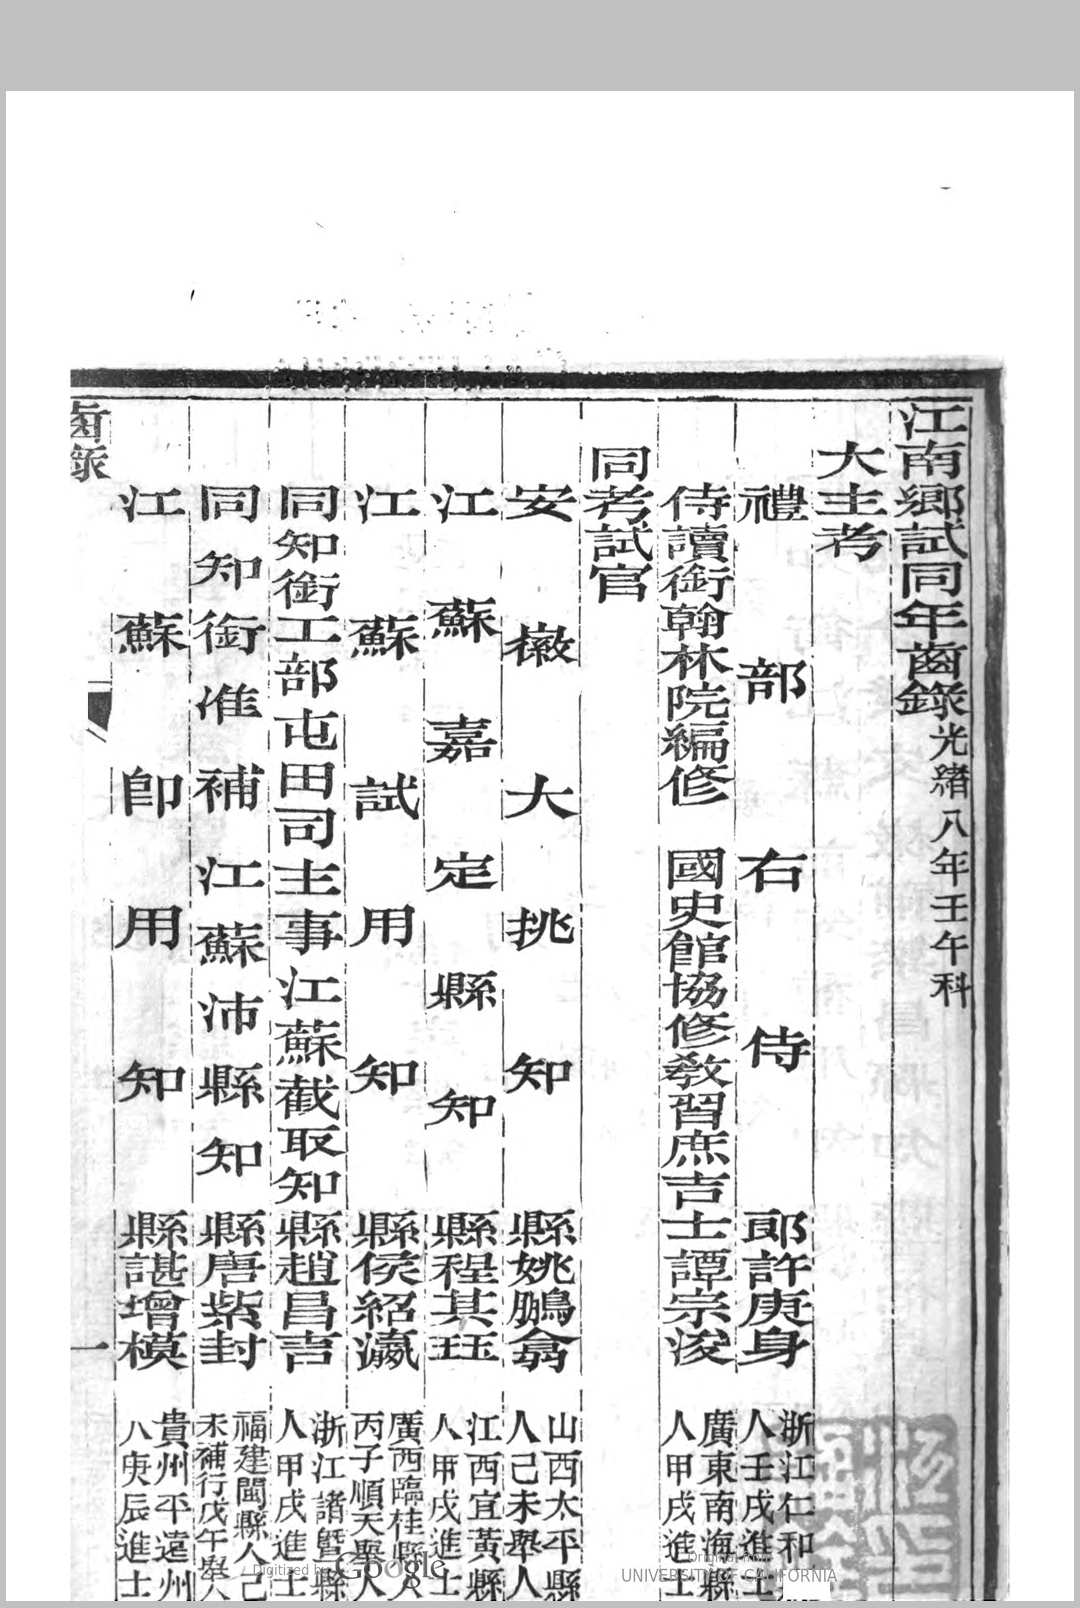 江南鄉試同年齒錄光緒八年壬午科
大主考
禮部右侍郎許庚身浙江仁和人壬戌進士
侍讀銜翰林院編修 國史館協修教習庶吉士譚宗浚廣東南海縣人甲戌進士
同考試官
安徽大挑知縣姚鵬翕山西太平縣人己未舉人
江蘇嘉定縣知縣程其珏江西宜黃縣人甲戌進士
江蘇試用知縣侯紹瀛廣西臨桂縣人丙子順天舉人
同知銜工部屯田司主事江蘇截取知縣趙昌言浙江諸暨縣人甲戌進士
同知銜准補江蘇沛縣知縣唐紫封福建閩縣人己未補行戊午舉人
江蘇即用知縣諶增模貴州平遠州人庚辰進士
齒錄
一
Digitized by Google
Original from
UNIVERSITY OF CALIFORNIA